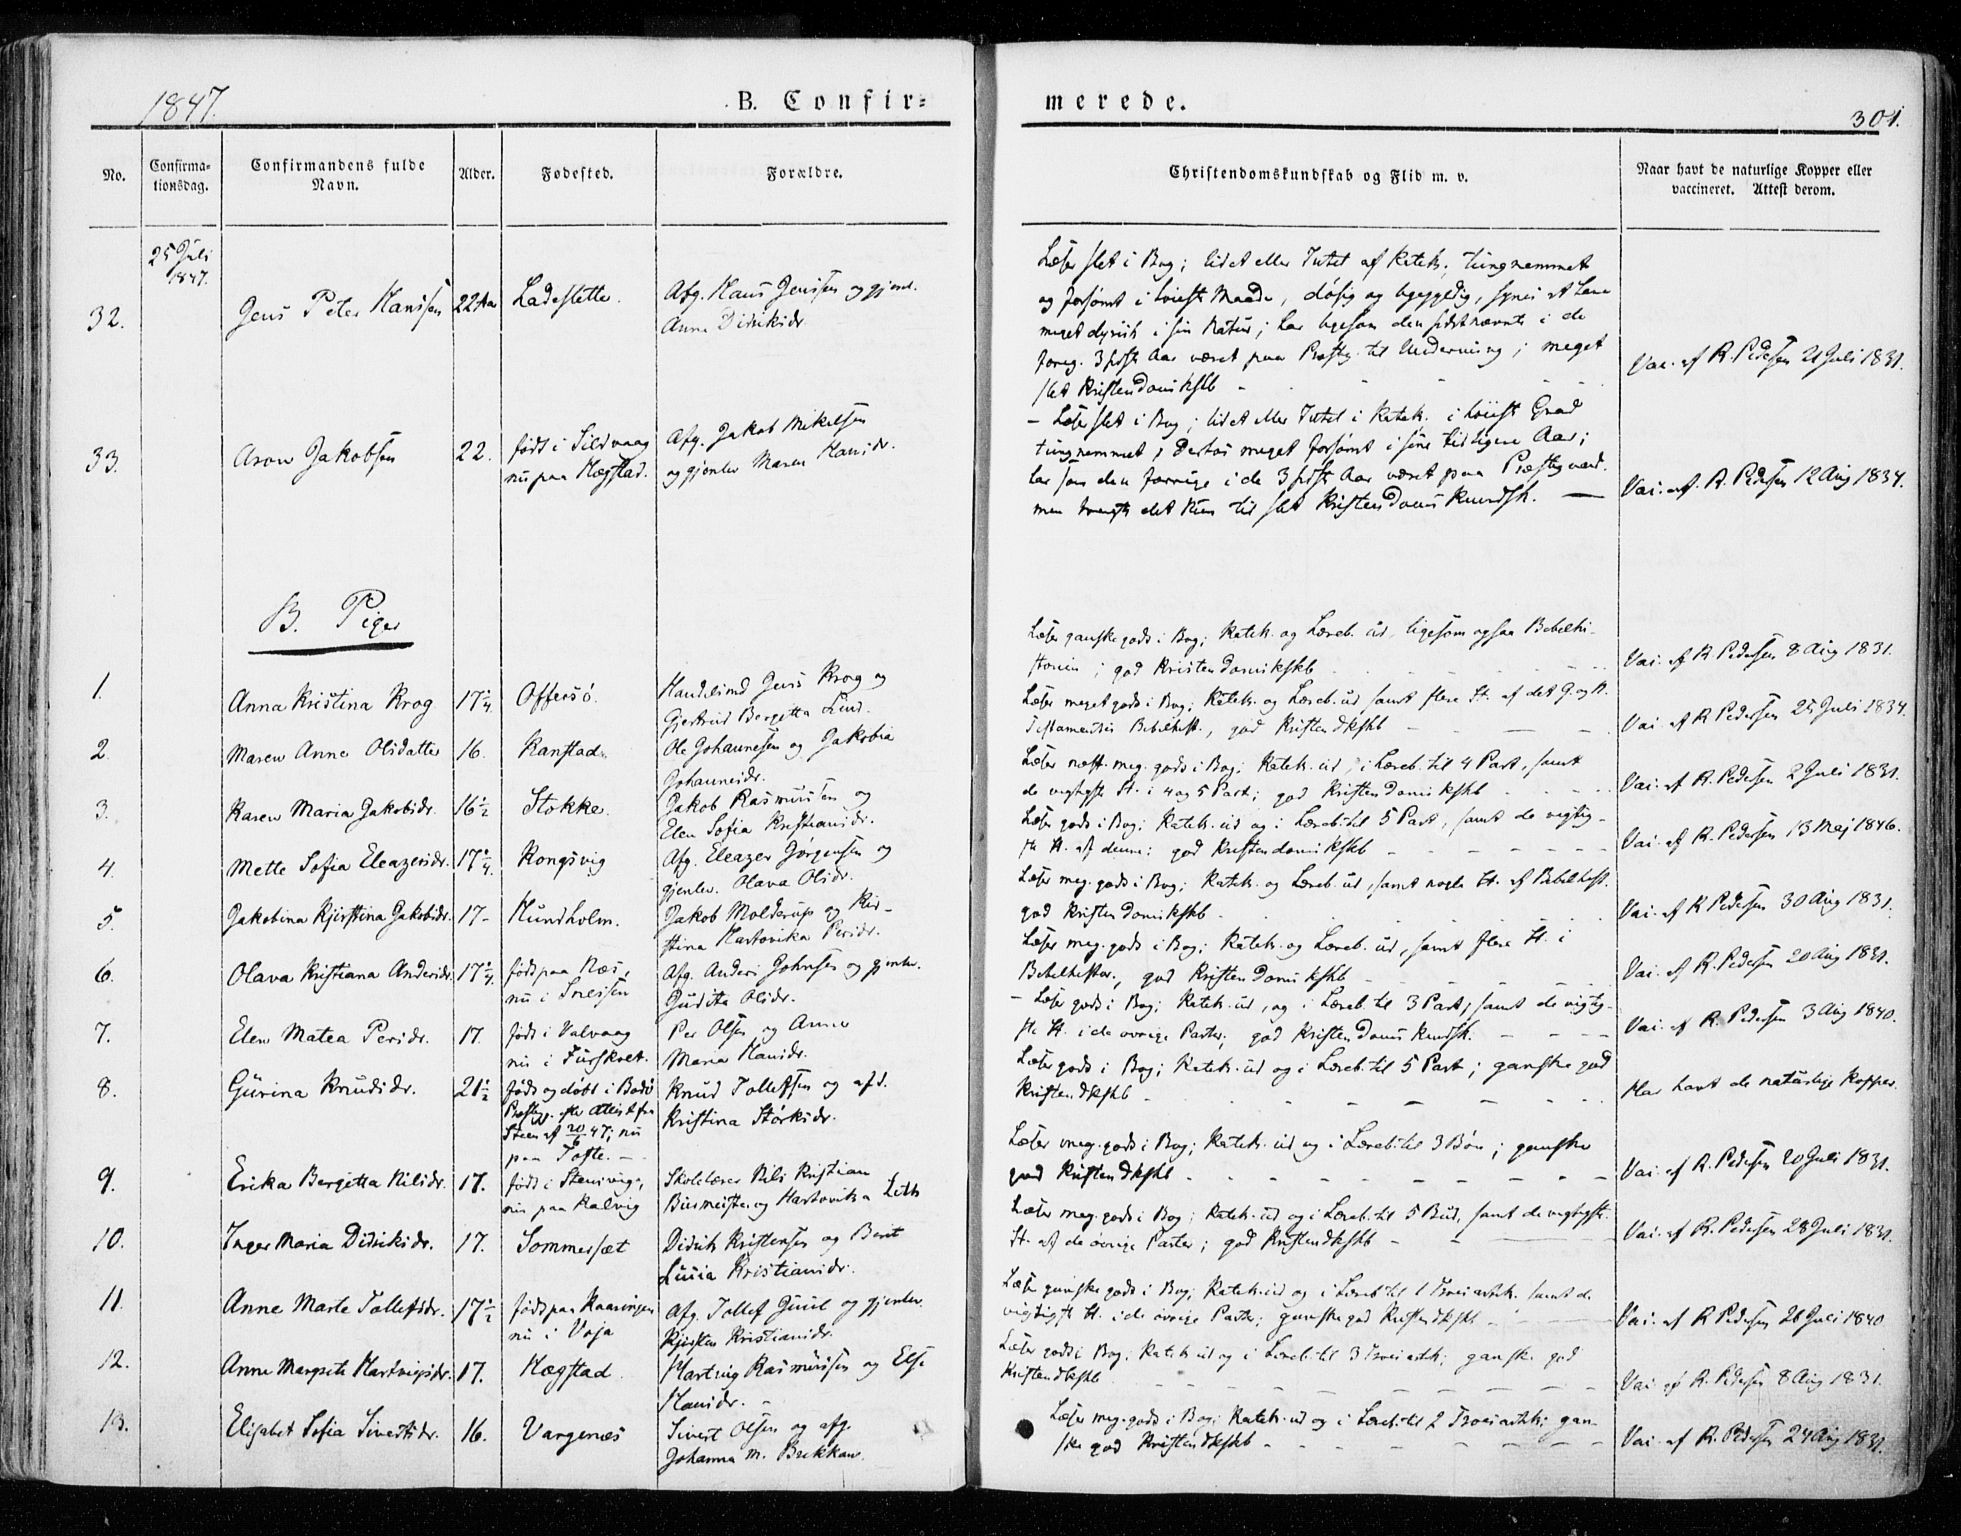 1847.
B. Confir=
merede.
301.
No.
Confirma-
tionsdag.
Confirmandens fulde
Navn.
Alder.
Fødested.
Forældre.
Christendomskundskab og Flid m. v.
Naar havt de naturlige Kopper eller
vaccineret. Attest derom.
25 Juli
1847.
32.
Jens Peter Hanssen
22 Aar
Ladeslette.
Afg. Hans Jenssen og gjenl.
Anna Didriksdr.
Læser slet i Bog; lidet eller Intet af Katek.; tungnemmet
og forsømt i høieste Maade, døsig og ligegyldig, synes at have
meget dyrisk i sin Natur; har ligesom den sidstnævnte i de
foreg. 3 sidste Aar været paa Præstg. til Underviisning; meget
slet Kristendomskskb -
Vac. af R. Pedersen 21 Juli 1831.
33.
Aron Jakobsen
22.
født i Sildvaag
nu paa Hægstad.
Afg. Jakob Mikelsen
og gjenlev. Maren Hansdr.
- Læser slet i Bog; lidet eller Intet i Katek. i høieste Grad
tungnemmet; Dertos meget forsømt i sine tidligere Aar;
har som den forrige i de 3 sidste Aar været paa Præstg.
men bragte det kun til slet Kristendoms Kundsk. —
Vac. af. R. Pedersen 12 Aug 1834.
B. Piger
1.
Anna Kristina Krog
17 1/4
Offersö.
Handelsmd Jens Krog og
Gjertrud Bergetta Lund.
Læser ganske gods i Bog; Katek. og Læreb. ud, ligesom ogsaa Bibelhi-
storien; god Kristendomskskb
Vac. af R Pedersen 8 Aug 1831.
2.
Maren Anne Olsdatter
16.
Kanstad.
Ole Johannesen og Jakobia
Johannesdr.
Læser meget gods i Bog; Katek. og Læreb. ud samt flere St. af det G. og N.
Testamentes Bibelhist., god Kristendkskb
Vac. af R Pedersen 25 Juli 1834.
3.
Karen Maria Jakobsdr.
16 1/2
Stokke.
Jakob Rasmussen og
Elen Sofia Kristiansdr.
Læser næst. meg. gods i Bog; Katek. ud, i Læreb. til 4 Part, samt
de vigtigste St. i 4 og 5 Part; god Kristendomskskb
Vac. af R. Pedersen 2 Juli 1831.
4.
Mette Sofia Eleazersdr.
17 1/4.
Kongsvig
Afg. Eleazer Jørgensen og
gjenlev. Olava Olsdr.
Læser gods i Bog; Katek. ud og i Læreb. til 5 Part, samt de vigtig-
ste St. af denne: god Kristendomskskb
Vac. af R. Pedersen 13 Maj 1846.
5.
Jakobina Kjirstina Jakobsdr.
17-
Hundholm.
Jakob Molderup og Kir-
stina Hartvika Persdr.
Læser meg. gods i Bog; Katek. og Læreb. ud, samt nogle St. af Bibelhist.
god Kristendomskskb
Vac. af R Pedersen 30 Aug 1831.
6.
Olava Kristiana Andersdr.
17 1/4.
født paa Næs,
nu i Snessen
Afg. Anders Johnsen og gjenlev.
Gudita Olsdr.
Læser meg. gods i Bog; Katek. og Læreb. ud, samt flere St. i
Bibelhistor.; god Kristendomskskb
Vac. af R. Pedersen 20 Aug 1831.
7.
Elen Matea Persdr.
17.
født i Valvaag
nu i Furskvet.
Per Olsen og Anne
Maria Hansdr.
- Læser gods i Bog; Katek. ud, og i Læreb. til 3 Part, samt de vigtig-
ste St. i de øvrige Parter; god Kristendoms kundsk.
Vac. af R. Pedersen 3 Aug 1840.
8.
Gurina Knudsdr.
21 1/2
født og døbt i Bodø
Præstgj. efter Attest fra
Steen af 20/6 47; nu
paa Tofte. -
Knud Tollefsen og afd.
Kristina Størksdr.
Læser gods i Bog; Katek. ud og i Læreb. til 5 Part; ganske god
Kristendkskb
Har havt de naturlige Kopper.
9.
Erika Bergetta Nilsdr.
17.
født i Stensvig,
nu paa Kalvig
Skolelærer Nils Kristian
Busmeister og Hartvika Leth
Læser meg. gods i Bog; Katek. ud og i Læreb. til 3 Bøn; ganske
god Kristendkskb
Vac. af R. Pedersen 20 Juli 1831.
10.
Inger Maria Didriksdr.
17.
Sommersæt
Didrik Kristensen og Berit
Lucia Kristiansdr.
Læser meg. gods i Bog; Katek. ud og i Læreb. til 5 Bud, samt de vigtigste
St. af de øvrige Parter; god Kristendkskb -
Vac. af R. Pedersen 28 Juli 1831.
11.
Anne Marte Tollefsdr.
17 1/2
født paa Kaaringen
nu i Voja
Afg. Tollef Juul og gjenlev.
Kjirsten Kristiansdr.
Læser ganske gods i Bog; Katek. ud og i Læreb. til 1 Troesartik. samt de
vigtigste St. i de øvrige Parter; ganske god Kristendkskb
Vac. af R Pedersen 26 Juli 1840
12.
Anne Margrete Hartvigsdr.
17.
Hægstad
Hartvig Rasmussen og Else
Hansdr. -
Læser gods i Bog; Katek. ud og i Læreb. til 3 Troesartik; ganske god
Kristendkskb
Vac. af R. Pedersen 8 Aug 1831.
13.
Elisabet Sofia Sivertsdr.
16.
Vargenæs
Sivert Olsen og afg.
Johanna M. Brekkan.
Læser meg. gods i Bog; Katek. ud og i Læreb. til 2 Troesartik; gan-
ske god Kristendkskb -
Vac. af R. Pedersen 24 Aug 1831.